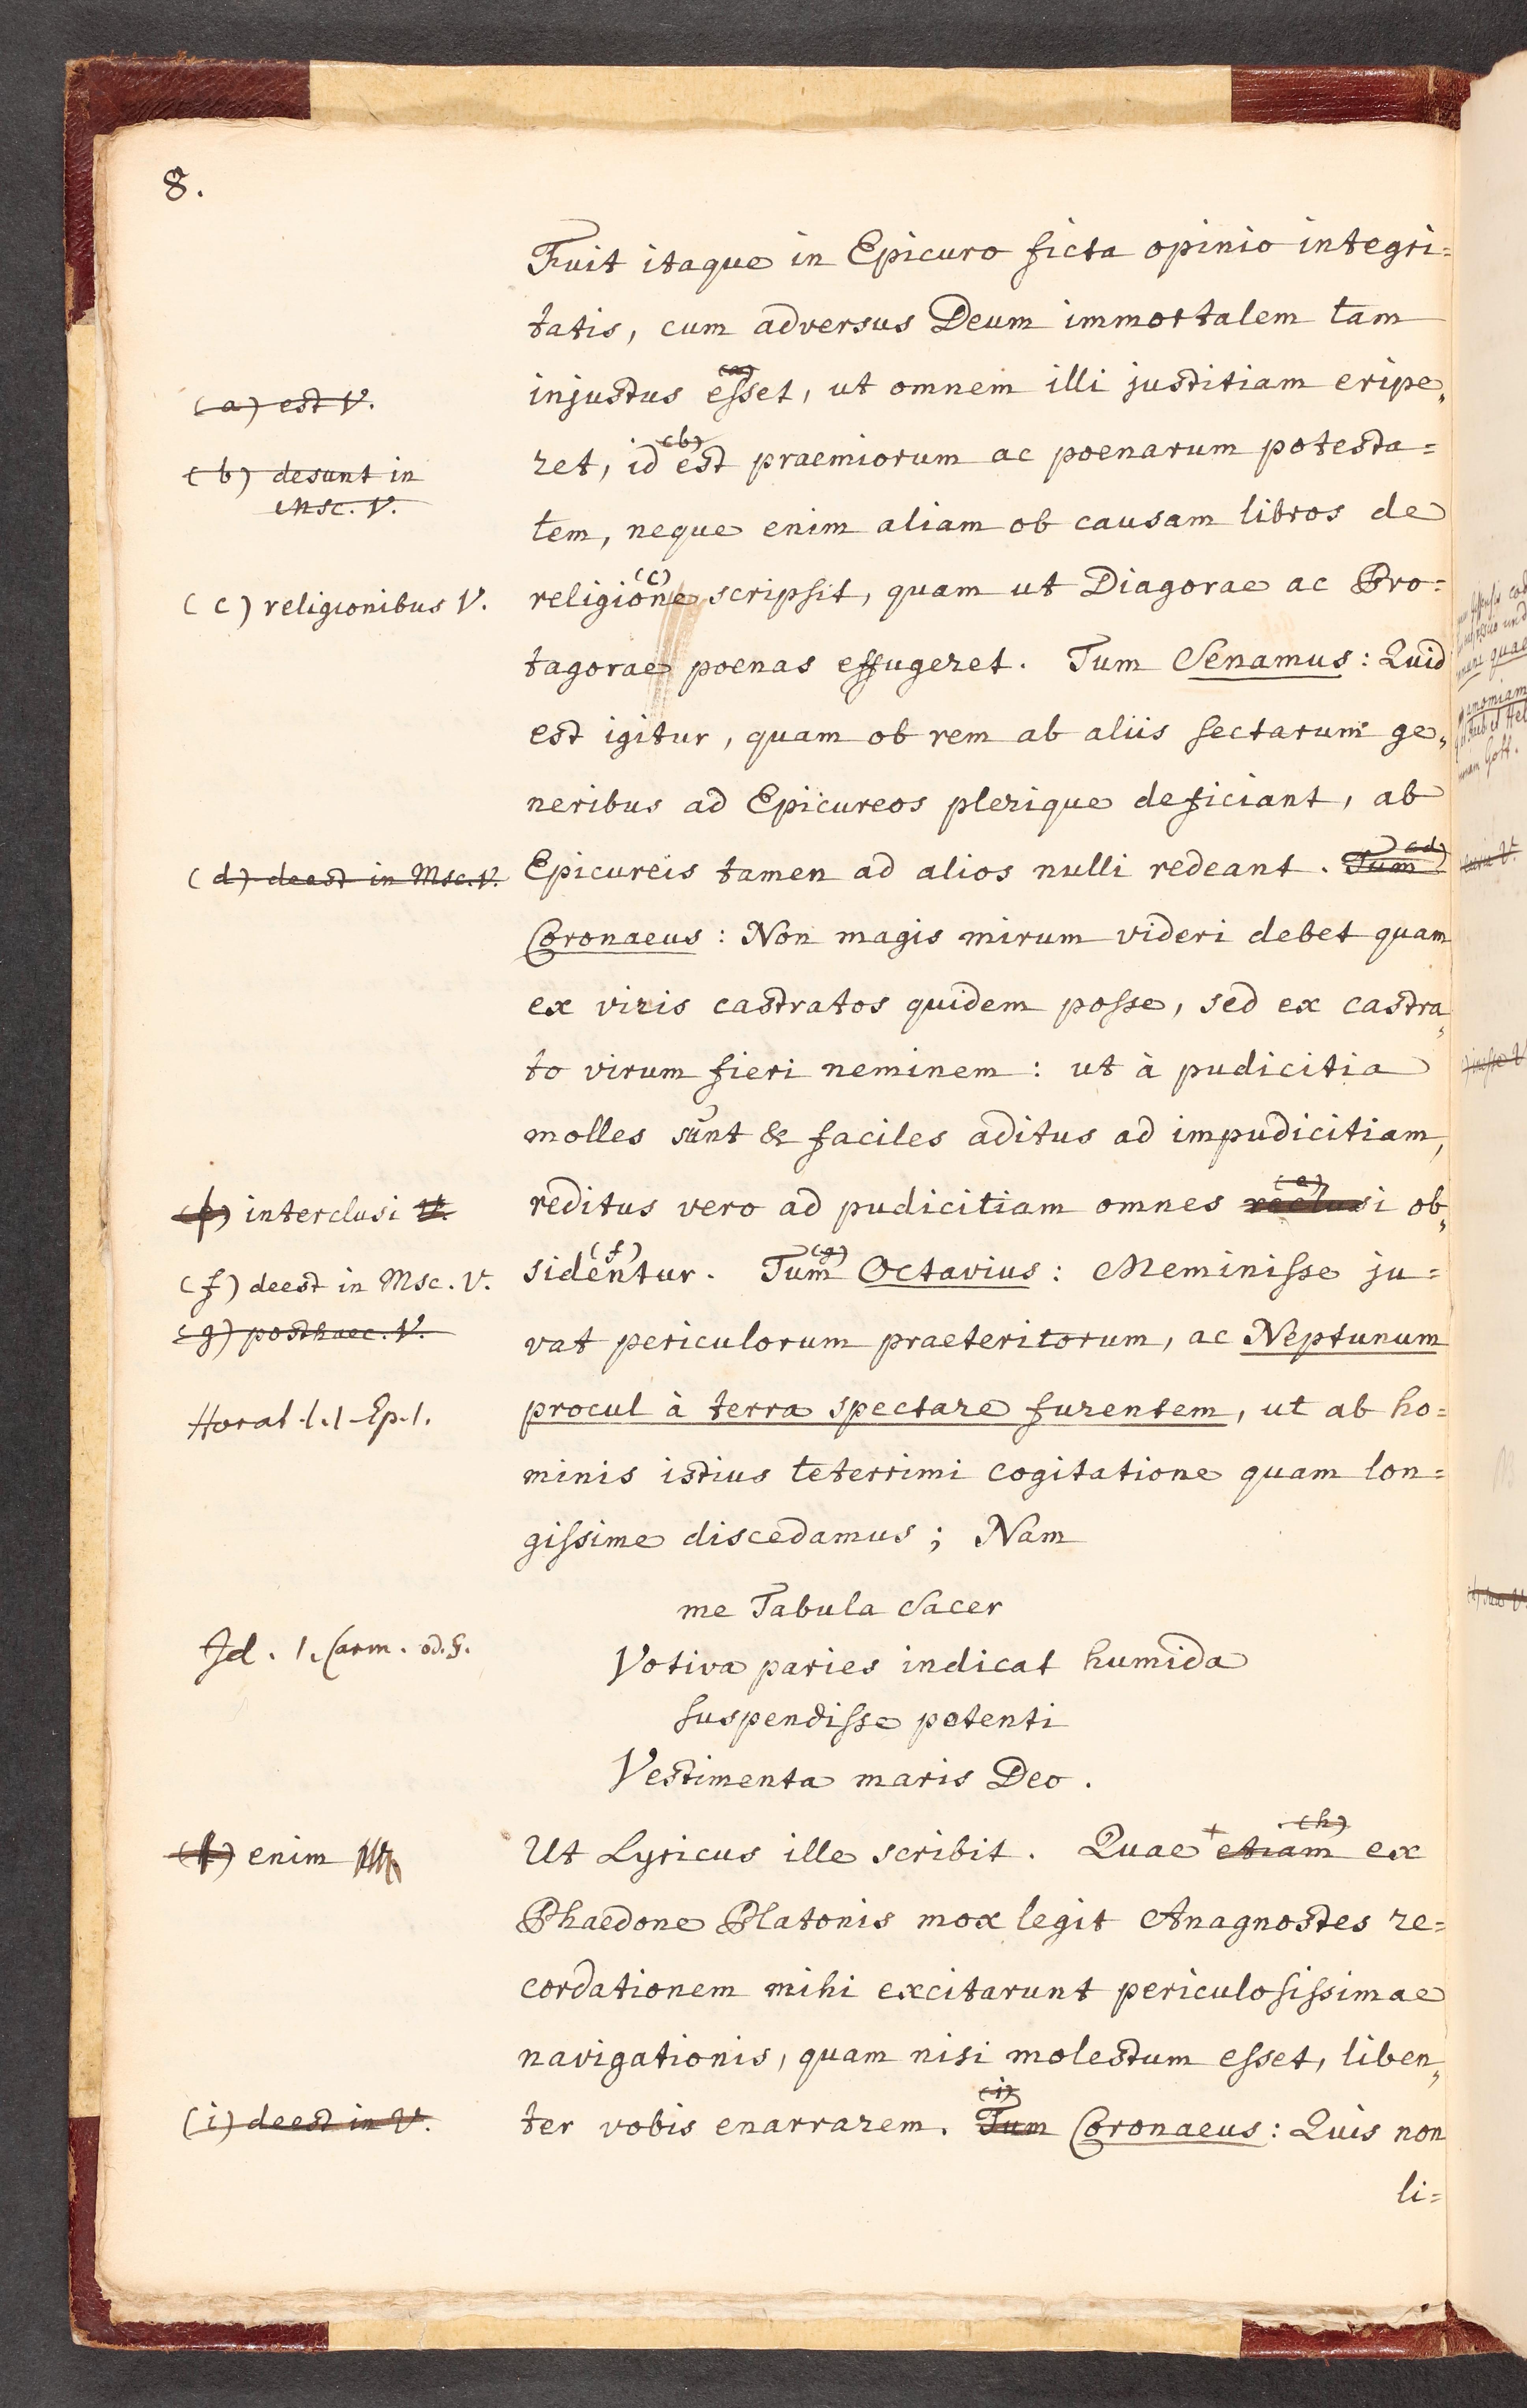 8.
Fuit itaque in Epicuro ficta opinio integri=
tatis, cum adversus Deum immortalem tam
(a) est V.
injustus (a) esset, ut omnem illi justitiam eripe„
(b) desunt in
Msc. V.
ret, id (b) est praemiorum ac poenarum potesta=
tem, neque enim aliam ob causam libros de
(c) religionibus V.
religione (c) scripsit, quam ut Diagorae ac Pro=
tagorae poenas effugeret. Tum Senamus: Quid
est igitur, quam ob rem ab aliis sectarum ge„
neribus ad Epicureos plerique deficiant, ab
(d) deest in Msc. V.
Epicureis tamen ad alios nulli redeant. Tum (d)
Coronaeus: Non magis mirum videri debet quam
ex viris castratos quidem posse, sed ex castra„
to virum fieri neminem: ut à pudicitia
molles sunt & faciles aditus ad impudicitiam,
interclusi V.
reditus vero ad pudicitiam omnes (e) reclusi ob„
(f) deest in Msc. V.
sidentur (f). Tum (g) Octavius: Meminisse ju=
(g) posthaec. V.
vat periculorum praeteritorum, ac Neptunum
Horat. l. 1. Ep. 1.
procul à terra spectare furentem, ut ab ho=
minis istius teterrimi cogitatione quam lon=
gissime discedamus; Nam
me Tabula Sacer
Id. 1. Carm. od. 5.
Votiva paries indicat humida
suspendisse potenti
Vestimenta maris Deo.
enim
Ut Lyricus ille scribit. Quae + etiam (h) ex
Phaedone Platonis mox legit Anagnostes re=
cordationem mihi excitarunt periculosissimae
navigationis, quam nisi molestum esset, liben„
(i) deest in V.
ter vobis enarrarem. (i) Tum Coronaeus: Quis non
li=